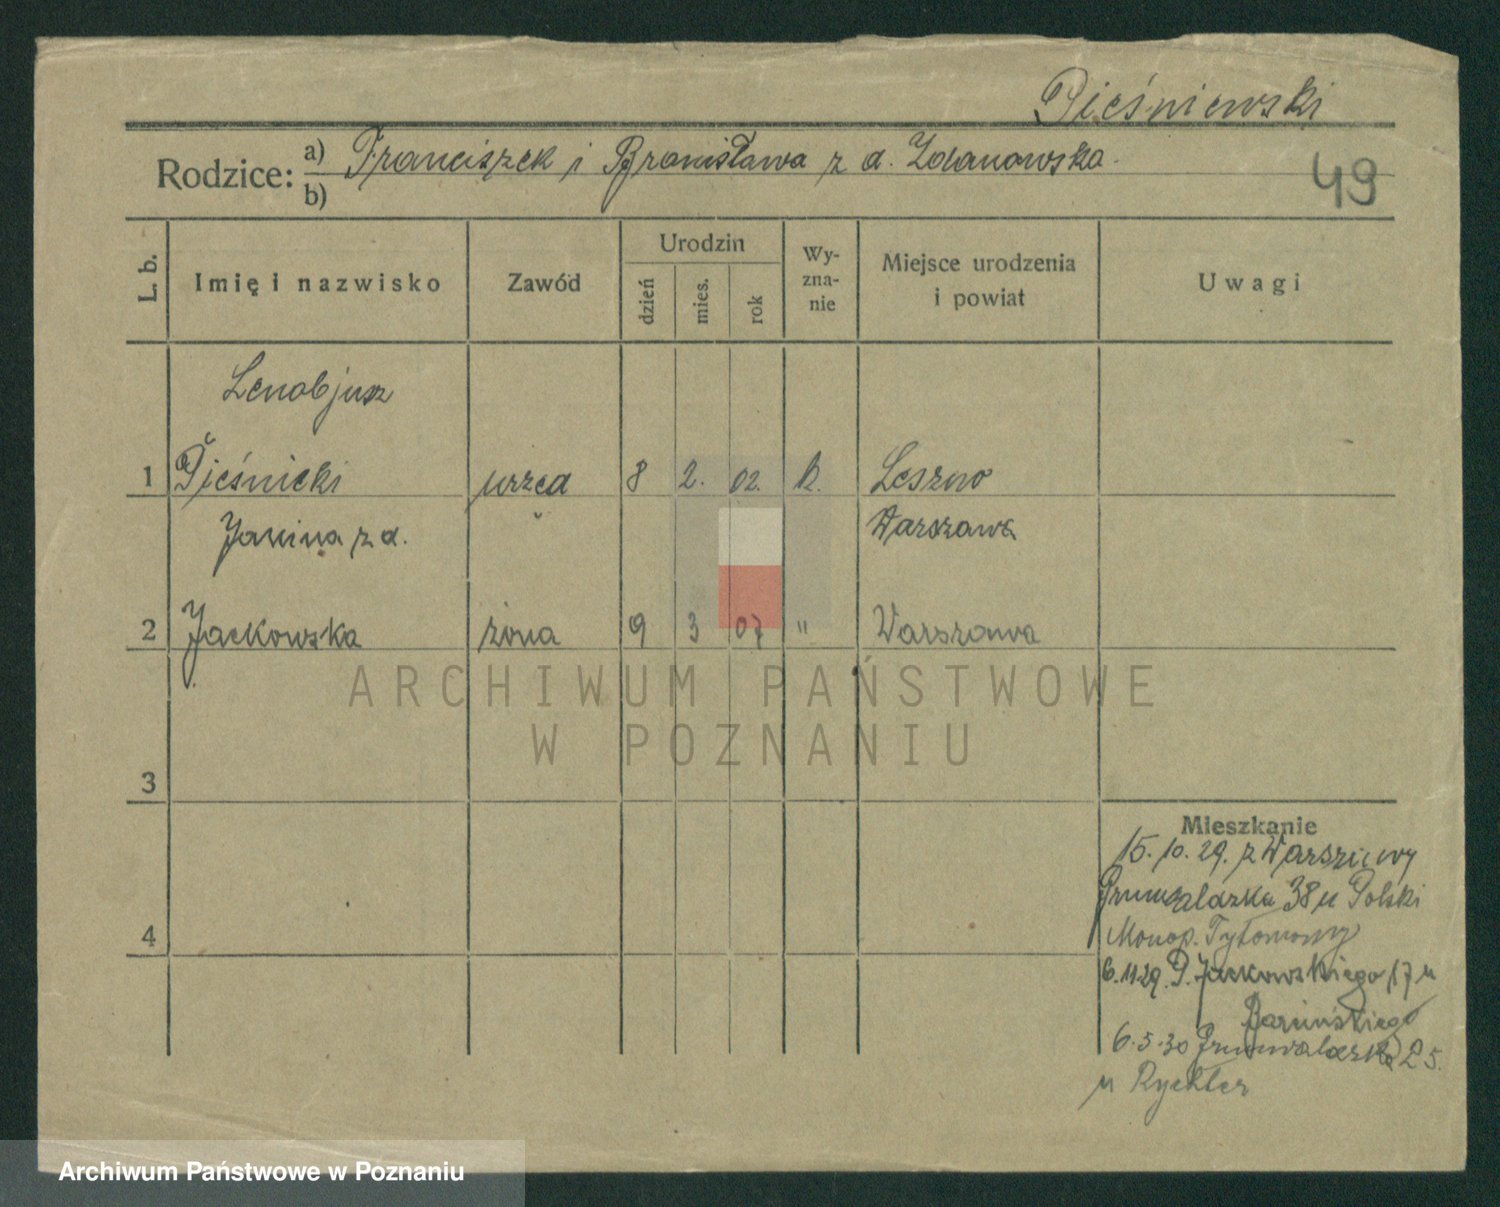 Pieśniewski
Rodzice: a) Franciszek i Bronisława z d. Zdanowska.
b)
49
L. b.
Imię i nazwisko
Zawód
Urodzin
dzień
mies.
rok
Wy-
zna-
nie
Miejsce urodzenia
i powiat
Uwagi
Zenobjusz
1 Pieśnicki urzęd 8 2. 02. k. Leszno
Janina z d. Warszawa
2 Jackowska żona 9 3 07 " Warszawa
3
4
Mieszkanie
15.10.29. z Warszawy
Grunwaldzka 38 u Polski
Monop. Tytoniowy
6.11.29. P. Jackowskiego 17 u
6.5.30 Grunwaldzka 25.
u Rychter
ARCHIWUM PAŃSTWOWE
W POZNANIU
Archiwum Państwowe w Poznaniu